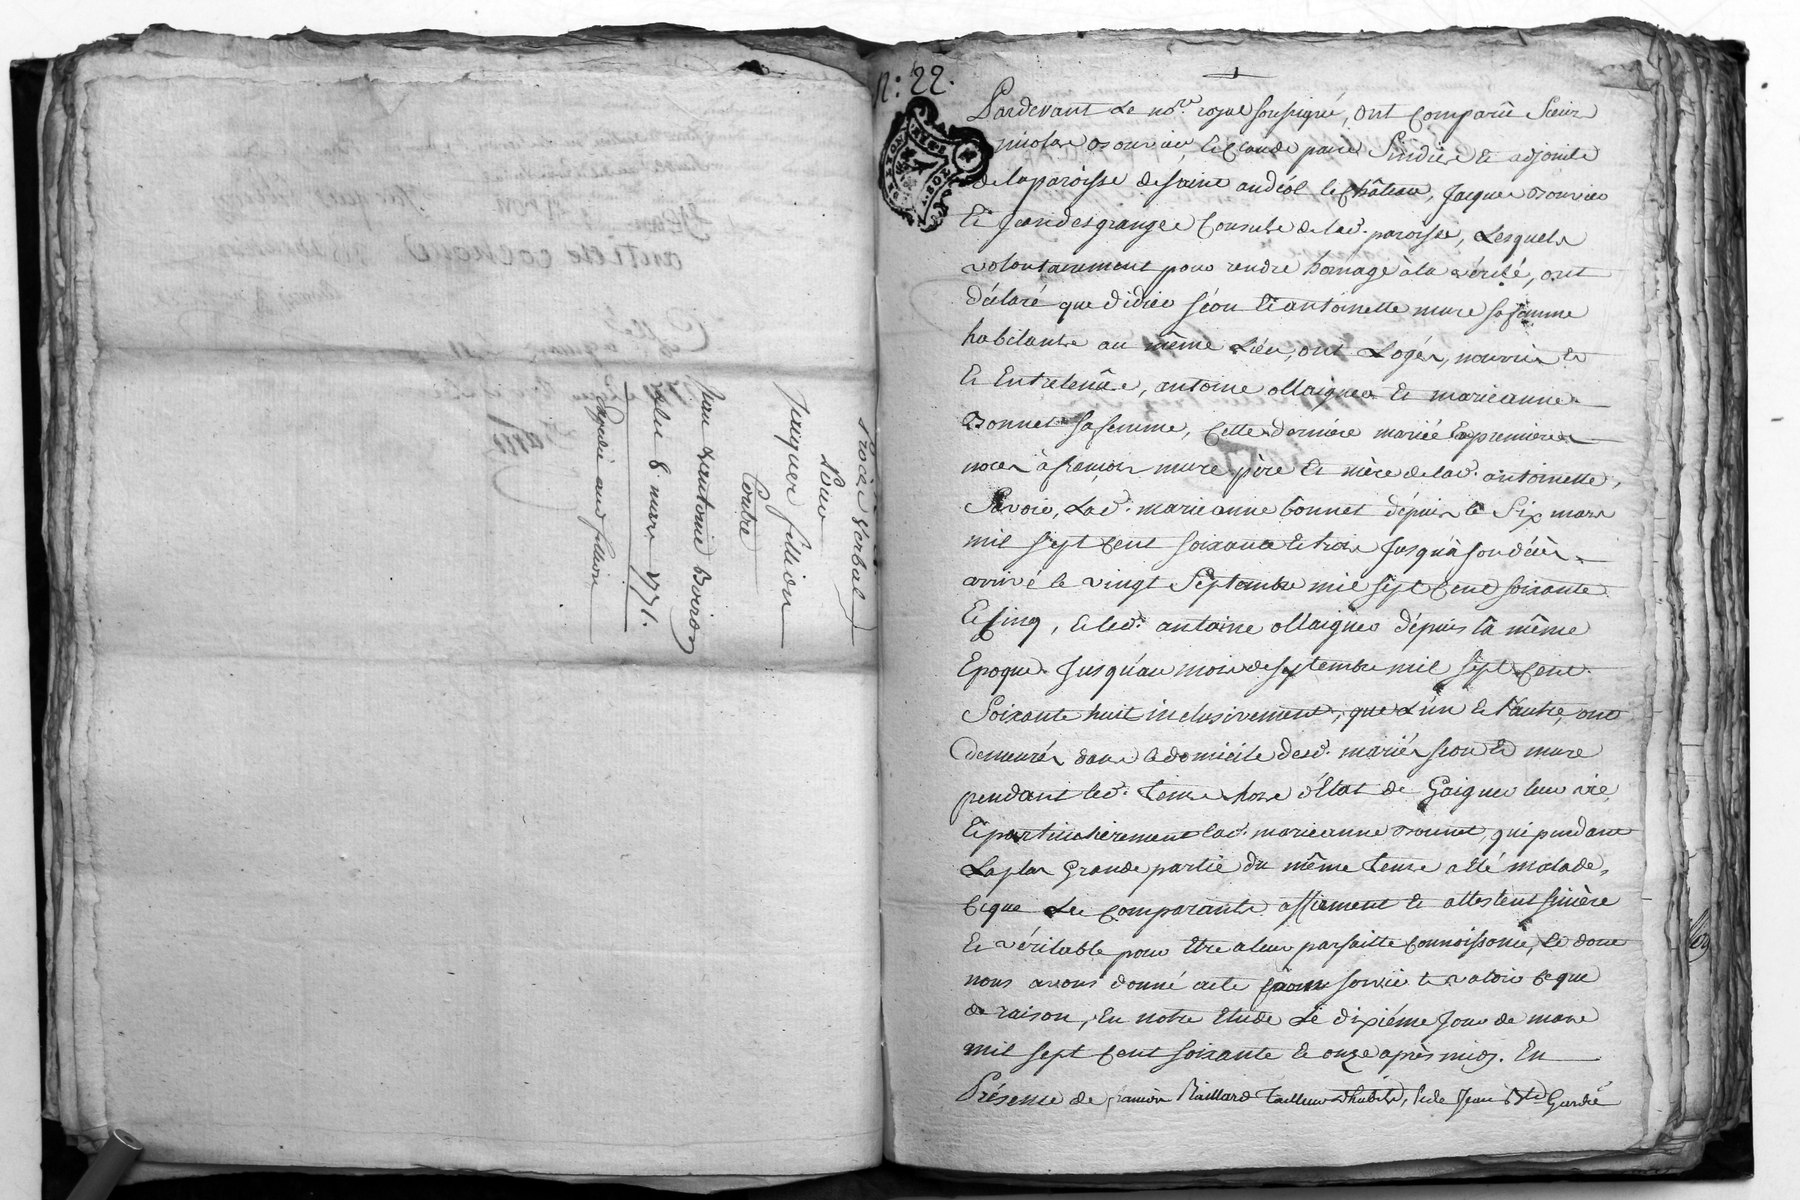 Procès Verbal
Pour
Jacques fillion
Contre
Jean Antoine Boiron
du 8 mars 1771.
Expedié aud. fillion
N: 22.
Pardevant Le no.re royal soussigné, ont comparû Sieur
nicolas Bouvier, et Claude paire Sindics et adjoints
de la paroisse de saint andéol le Château, Jacques Bouvier
Et Jean desgrange Consuls de lad. paroisse, Lesquels
volontairement pour rendre homage à la vérité, ont
déclaré que didier séon Et antoinette mure sa femme
habitants au même Lieu, ont Logés, nourris et
Et Entretenûs, antoine ollaignier Et marieanne
Bonnet sa femme, Cette dernière mariée En premieres
noces à françois mure père Et mère de lad. antoinette,
Savoir, Lad. marieanne bonnet dépuis le Six mars
mil sept Cent soixante et trois Jusqu'à son décès
arrivé le vingt Septembre mil sept Cent soixante
Et Cinq, Et led. antoine ollaignier dépuis la même
Epoque Jusqu'au mois de septembre mil sept Cent
Soixante huit inclusivement, que L'un Et l'autre, ont
demeurés dans le domicile desd. mariés seon Et mure
pendant led. tems hors d'Etat de Gaigner leur vie,
Et particulièrement lad. marieanne Bonnet, qui pendant
La plus Grande partie du même tems a Eté malade,
Ce que Les Comparants affirment Et attestent sincère
Et véritable pour Etre a leur parfaitte Connoissance, Et dont
nous avons donné acte pour servir Et valoir Ce que
de raison, En notre Etude Le dixiéme Jour de mars
mil sept Cent soixante Et onze après midy. En
Présence de françois Raillard tailleur d'habits, Et de Jean Bte Gardé